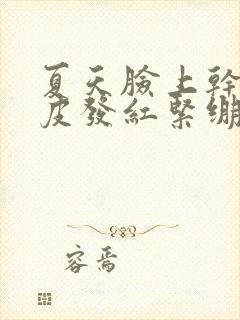 夏天臉上幹
皮發紅緊繃
容焉